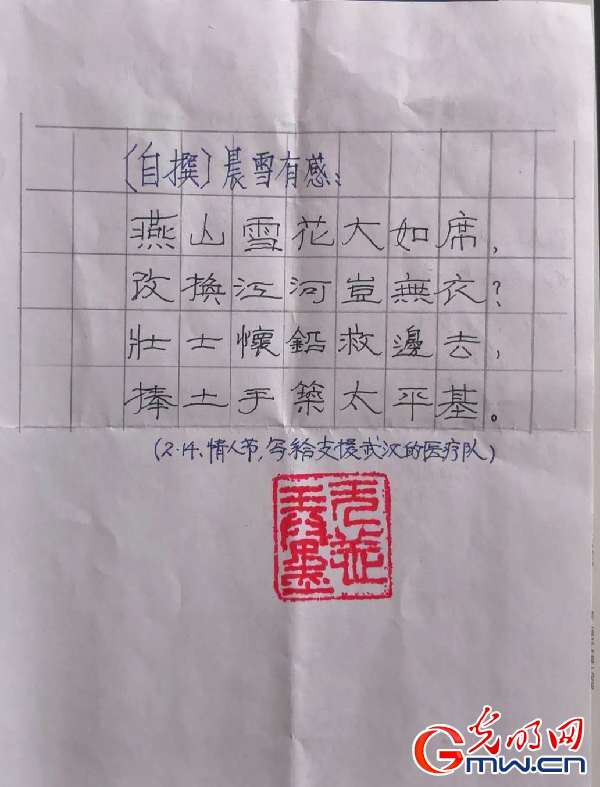 〔自撰〕晨雪有感：
燕山雪花大如席，
改換江河豈無衣？
壯士懷鉛救邊去，
捧土手築太平基。
(2.14、情人节，写给支援武汉的医疗队)
光明网
GMW.cn